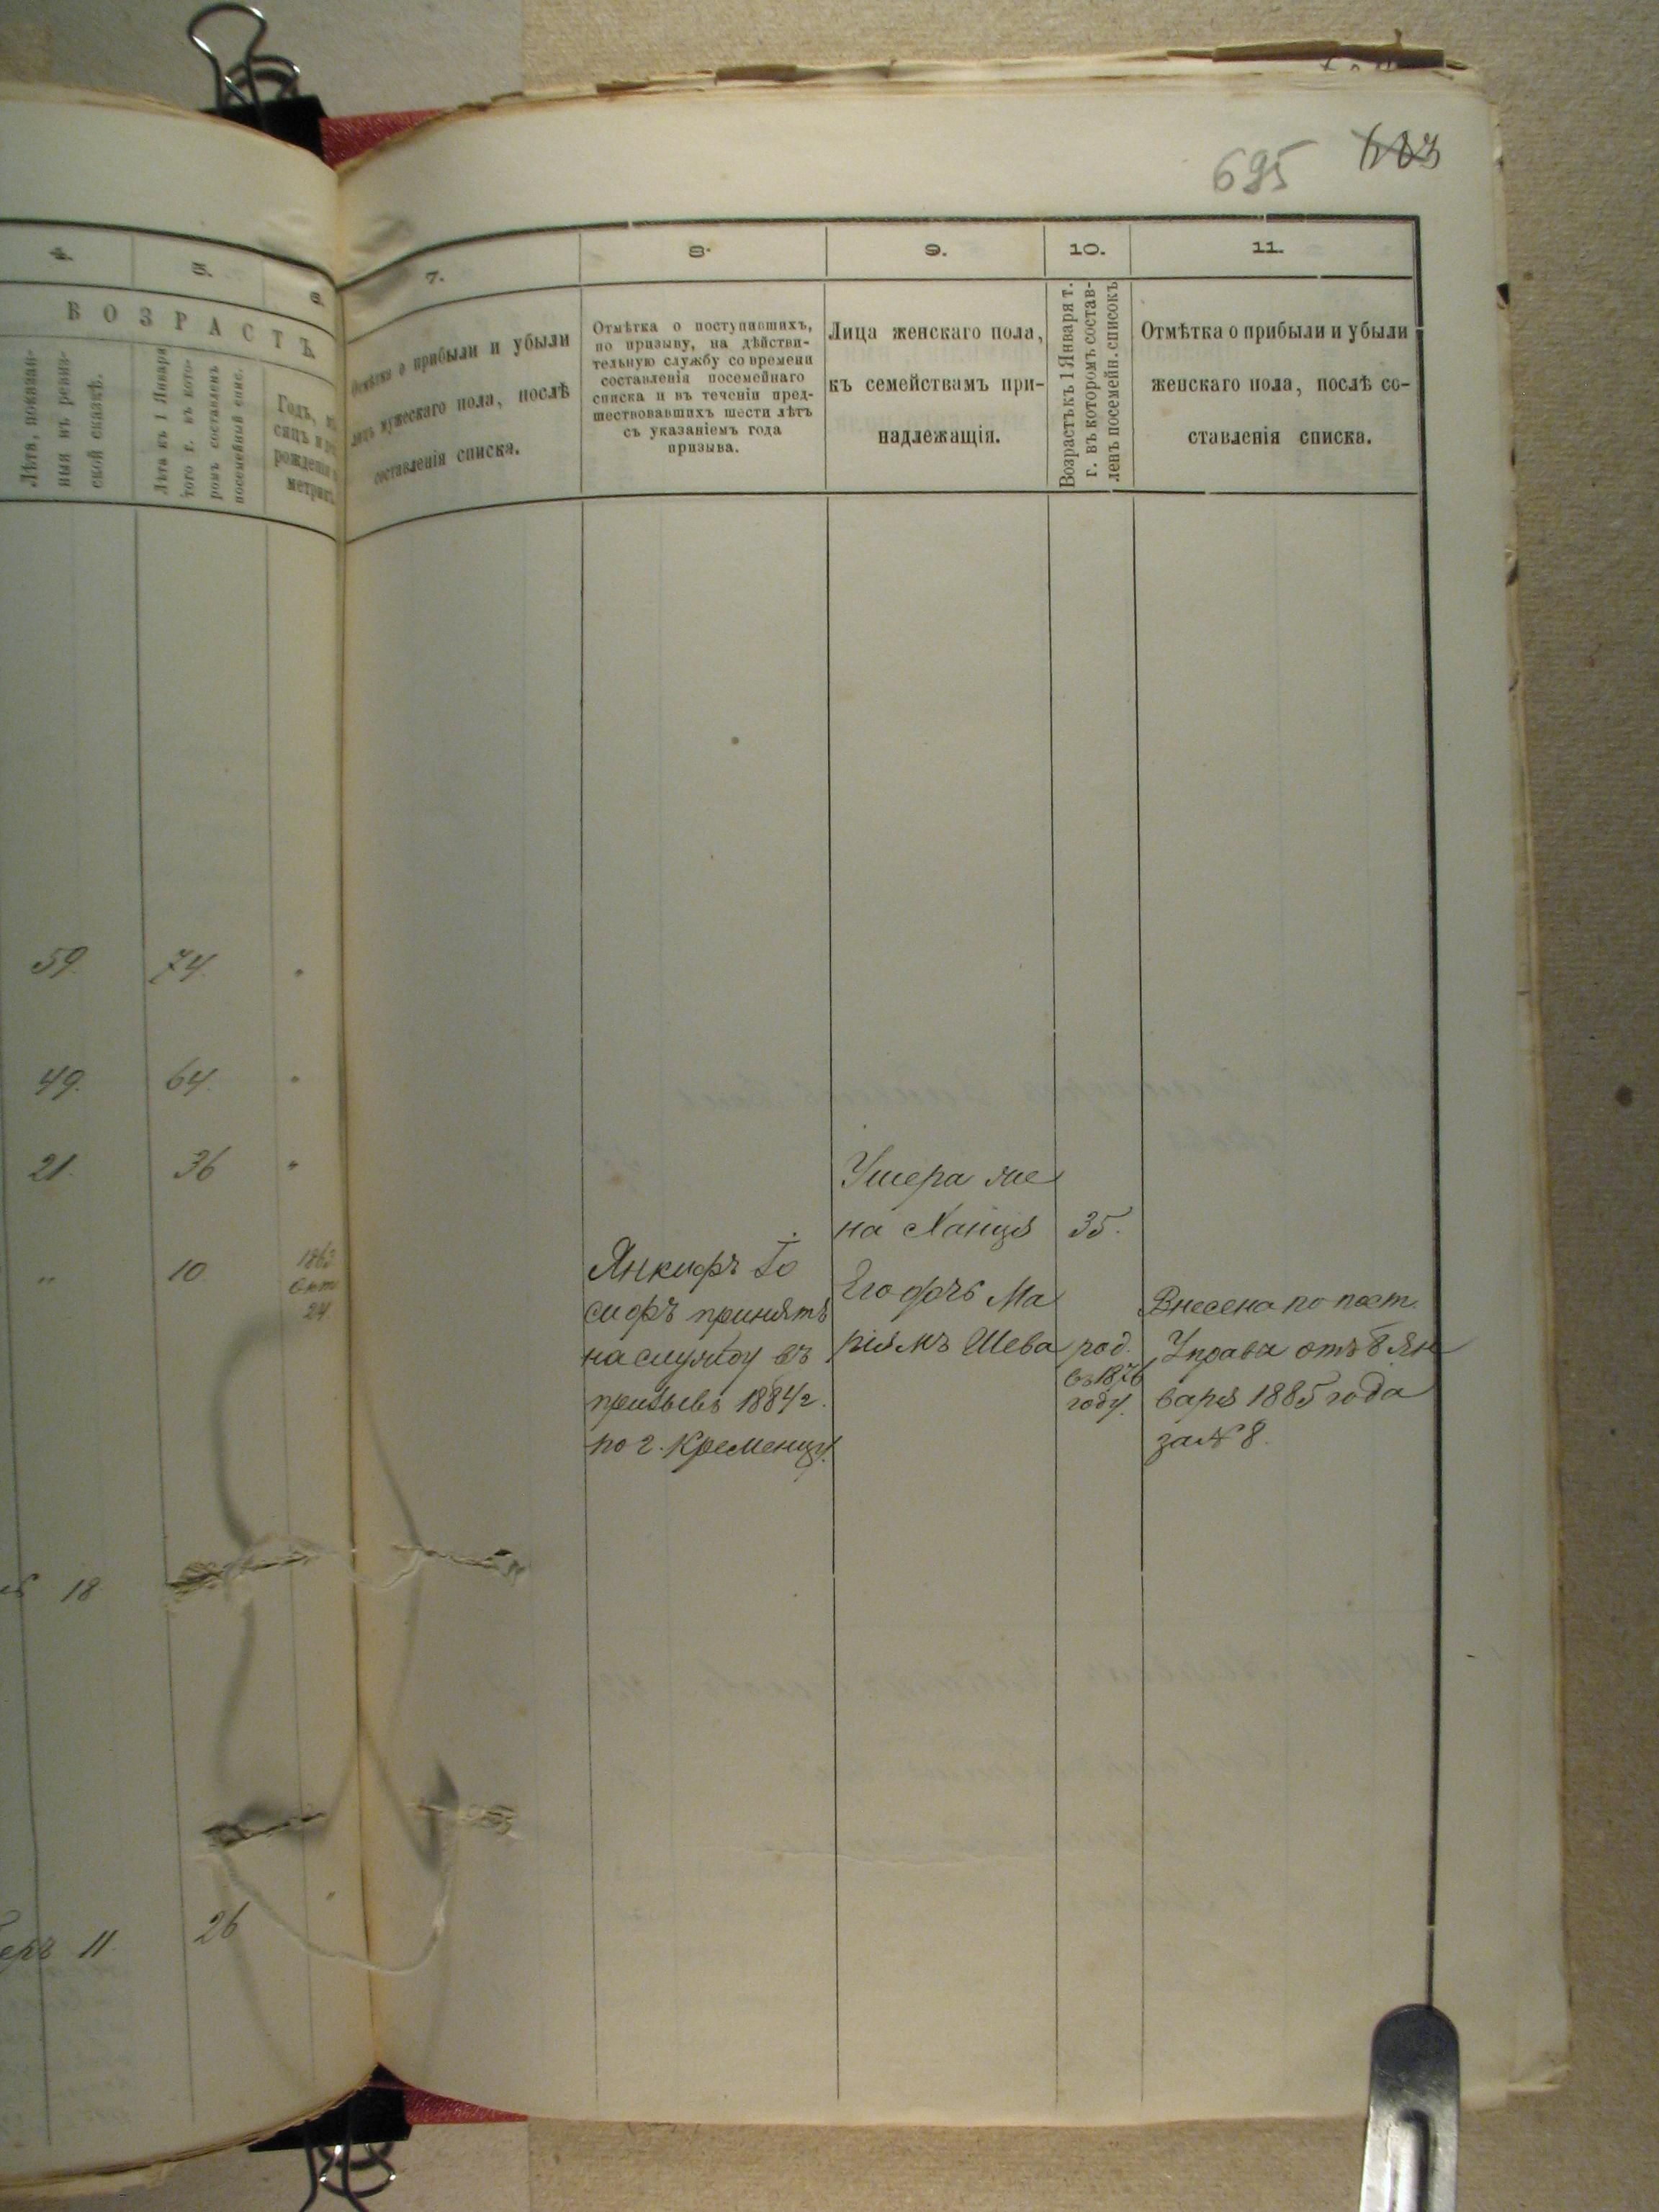 695
4.
5.
6.
ВОЗРАСТЪ.
Лѣта, показан-
ныя въ ревиз-
ской сказкѣ.
Лѣта къ 1 Января
того г. въ кото-
ромъ составленъ
посемейный спис.
Годъ, мѣ-
сяцъ и
рожденія
метрик
59.
74.
49.
64.
21.
36
"
"
10
1863
Окт
24
18
11.
26
7.
8.
9.
10.
11.
Отмѣтка о прибыли и убыли
лицъ мужескаго пола, послѣ
составленія списка.
Отмѣтка о поступившихъ,
по призыву, на дѣйстви-
тельную службу со времени
составленія посемейнаго
списка и въ теченіи пред-
шествовавшихъ шести лѣтъ
съ указаніемъ года
призыва.
Лица женскаго пола,
къ семействамъ при-
надлежащія.
Возрастъ къ 1 Января т.
г. въ которомъ состав-
ленъ посемейн. списокъ
Отмѣтка о прибыли и убыли
женскаго пола, послѣ со-
ставленія списка.
Янкифъ Іо
сифъ принятъ
на службу въ
призывъ 1884 г.
по г. Кременцу.
Ушера же
на Ханця
35.
Его дочь Ма
ріямъ Шева
род.
въ 1876
году.
Внесена по пост.
Управы отъ 8 Ян
варя 1885 года
за № 8.